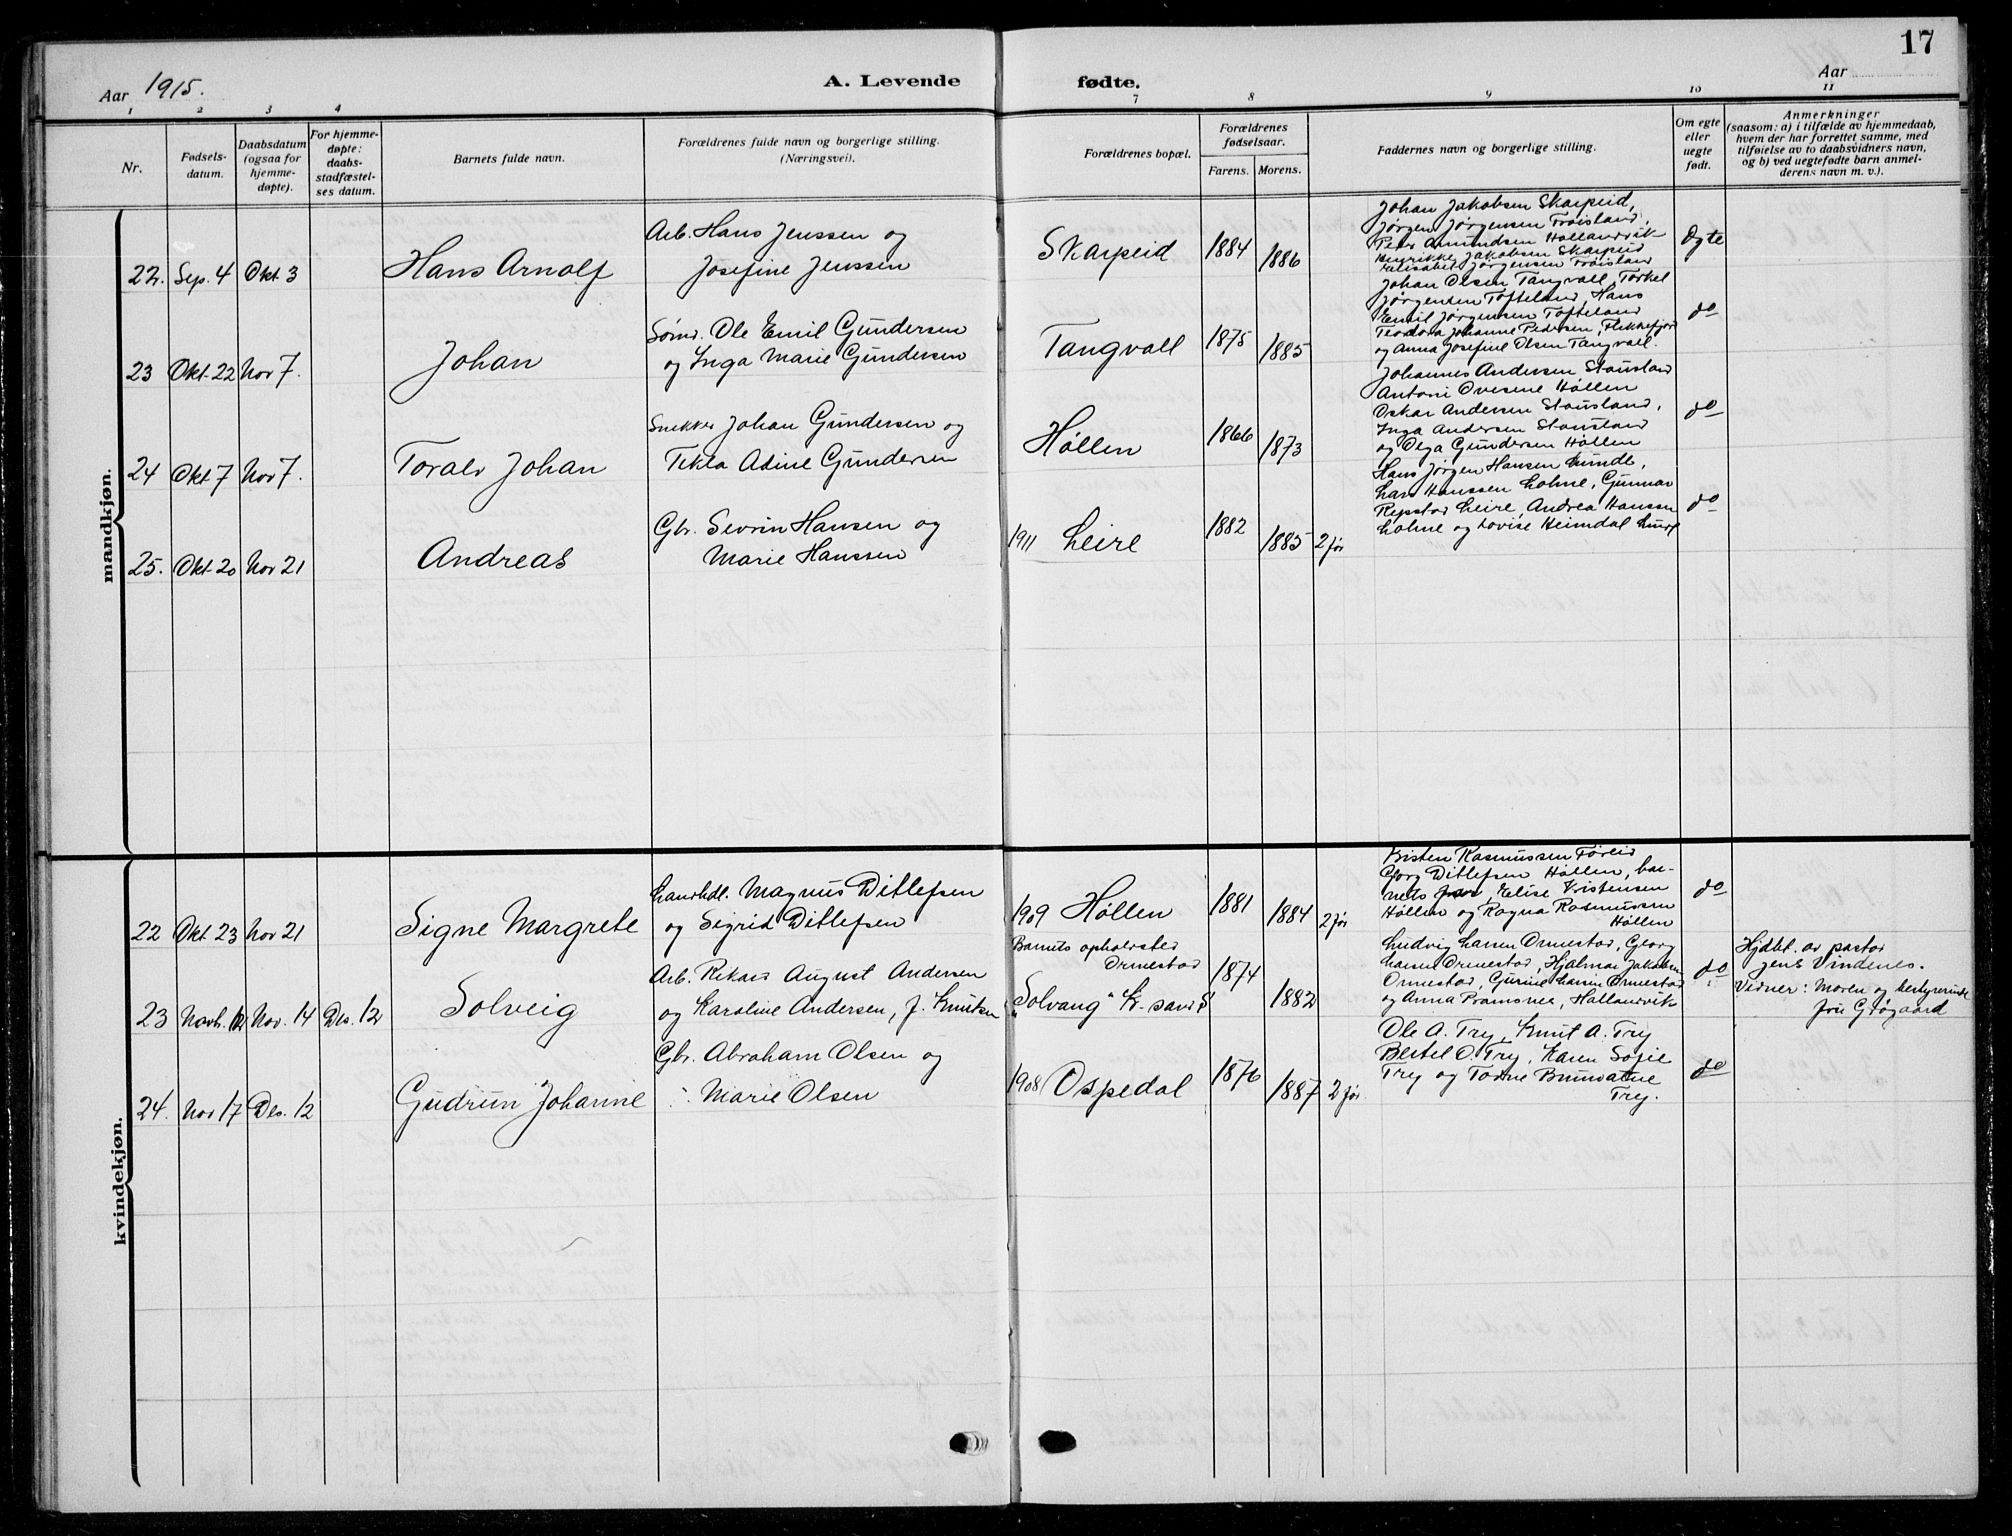 17
Aar 1915.
A. Levende fødte.
Aar
1 2 3 4 7 8 9 10 11
Nr.
Fødsels-
datum.
Daabsdatum
(ogsaa for
hjemme-
døpte).
For hjemme-
døpte:
daabs-
stadfæstel-
ses datum.
Barnets fulde navn.
Forældrenes fulde navn og borgerlige stilling.
(Næringsvei).
Forældrenes bopæl.
Forældrenes
fødselsaar.
Farens. Morens.
Faddernes navn og borgerlige stilling.
Om egte
eller
uegte
født.
Anmerkninger
(saasom: a) i tilfælde av hjemmedaab,
hvem der har forrettet samme, med
tilføielse av to daabsvidners navn,
og b) ved uegtefødte barn anmel-
derens navn m. v.).
mandkjøn.
22. Sep. 4 Okt 3
Hans Arnolf
Arb. Hans Jenssen og
Josefine Jenssen
Skarpeid
1884 1886
Johan Jakobsen Skarpeid,
Jørgen Jørgensen Frøisland,
Peter Amundsen Hallandvik
Henrikke Jakobsen Skarpeid
Elisabet Jørgensen Frøisland
Øgte
23 Okt. 22 Nov 7.
Johan
Sømd. Ole Emil Gundersen
og Inga Marie Gundersen
Tangvall
1875 1885
Johan Olsen Tangvall, Torkel
Jørgensen Tofteland, Hans
Emil Jørgensen Tofteland
Teodora Johanne Pedersen, Flekkefjor
og Anna Josefine Olsen Tangvall.
do
24 Okt 7 Nov 7.
Toralv Johan
Snekker Johan Gundersen og
Tekla Adine Gundersen
Høllen
1866 1873
Johannes Andersen Stausland
Antoni Ovesene Høllen
Oskar Andersen Stausland,
Inga Andersen Stausland
og Olga Gundersen Høllen
do
25. Okt 20 Nov 21
Andreas
Gbr. Sevrin Hansen og
Marie Hanssen
1911 Leire
1882 1885 2 før
Hans Jørgen Hansen Lunde,
Lars Hanssen Lohne, Gunnar
Repstad Leire, Andrea Hanssen
Lohne og Lovise Heimdal Lunde
do
kvindekjøn.
22 Okt 23 Nov 21
Signe Margrete
Landhdl. Magnus Ditlefsen
og Sigrid Ditlefsen
1909 Høllen
1881 1884 2 før
Kristen Rasmussen
Georg Ditlefsen Høllen, bar-
nets far, Elise Kristensen
Høllen og Ragna Rasmussen
Høllen
do
23 Novb. 12 Nov. 14 Des. 12
Solveig
Arb. Rikard August Andersen
og Karoline Andersen, f. Knutsen
Barnets opholdsted
Ormestad
"Solvang" Kr.sand S
1874 1882
Ludvig Larsen Ormestad, Georg
Larsen Ormestad, Hjalmar Jakobsen
Ormestad, Gurine Larsen Ormestad
og Anna Hallandvik
do
Hjdbt. av pastor
Jens Vindenes.
Vidner: Moren og bestyrerinde
fru Grøgaard
24. Nov 17 Des. 12
Gudrun Johanne
Gbr. Abraham Olsen og
Marie Olsen
1908 Ospedal
1876 1887 2 før
Ole A. Try, Knut A. Try
Bertel O. Try, Karen Sofie
Try og Tomine Brunvatne
Try.
do